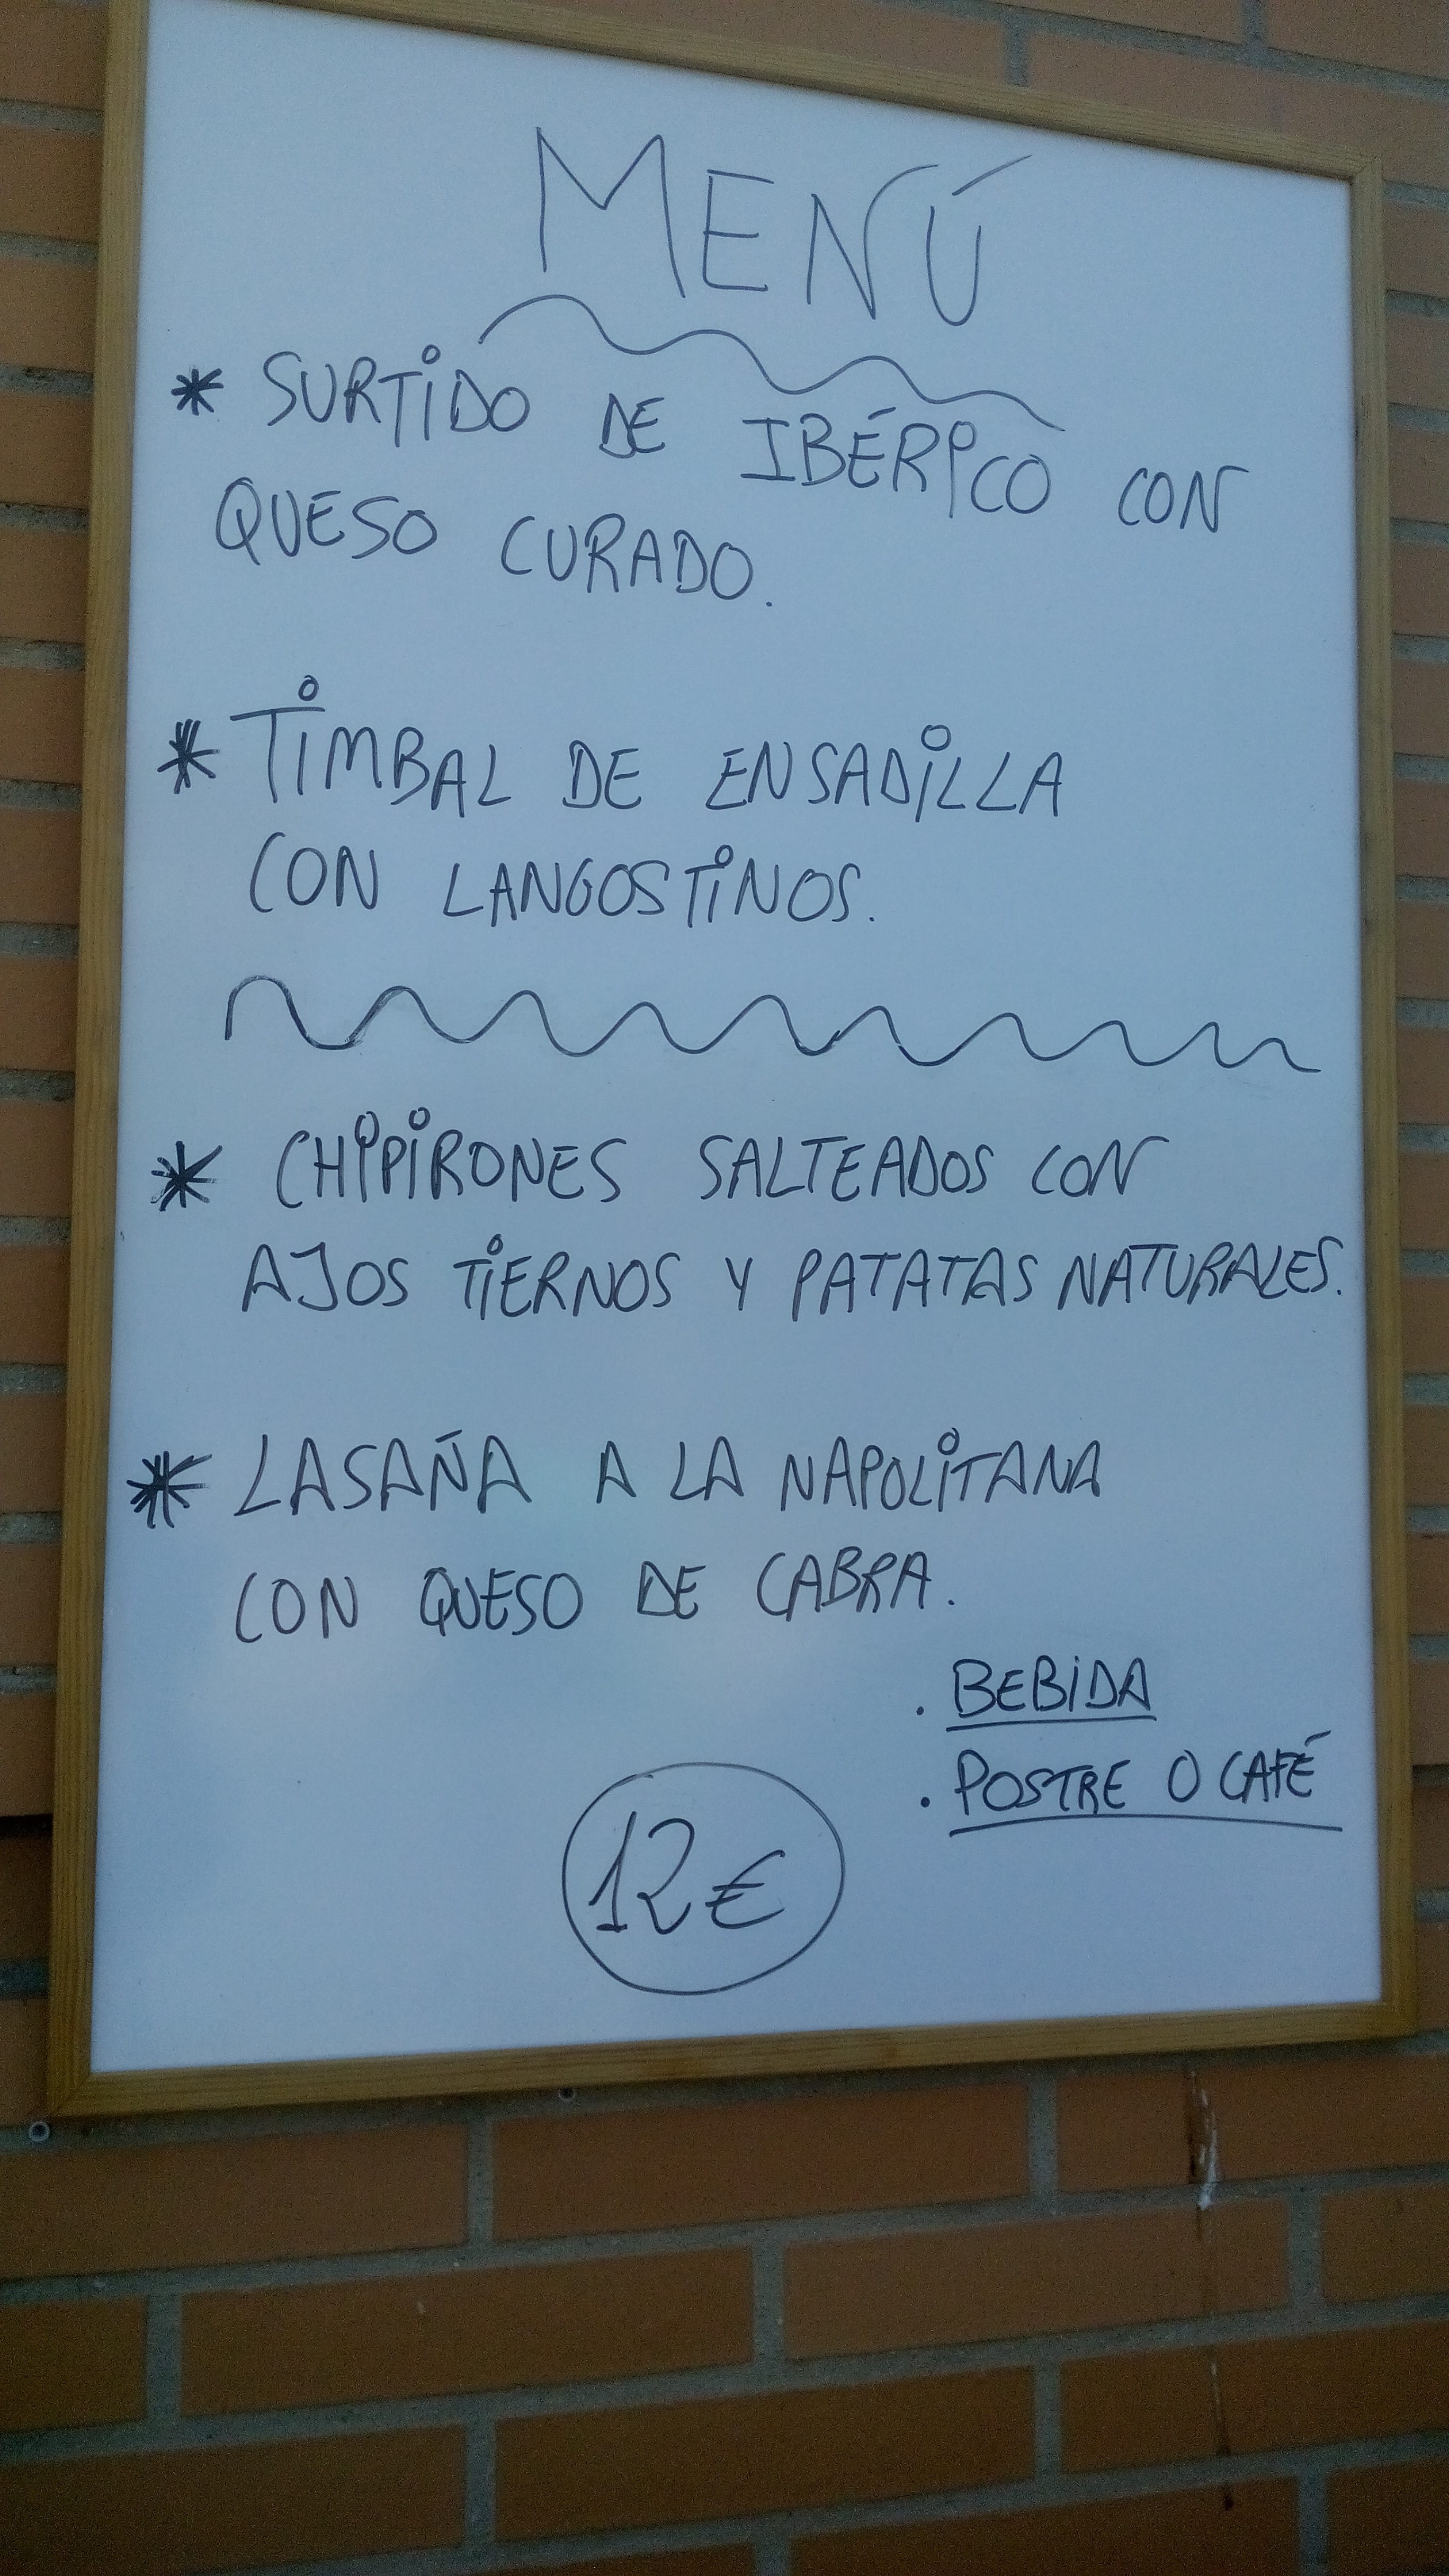 MENÚ
* SURTIDO DE IBÉRICO CON
QUESO CURADO.
* TIMBAL DE ENSADILLA
CON LANGOSTINOS.
* CHIPIRONES SALTEADOS CON
AJOS TIERNOS Y PATATAS NATURALES.
* LASAÑA A LA NAPOLITANA
CON QUESO DE CABRA.
. BEBIDA
. POSTRE O CAFÉ
12€